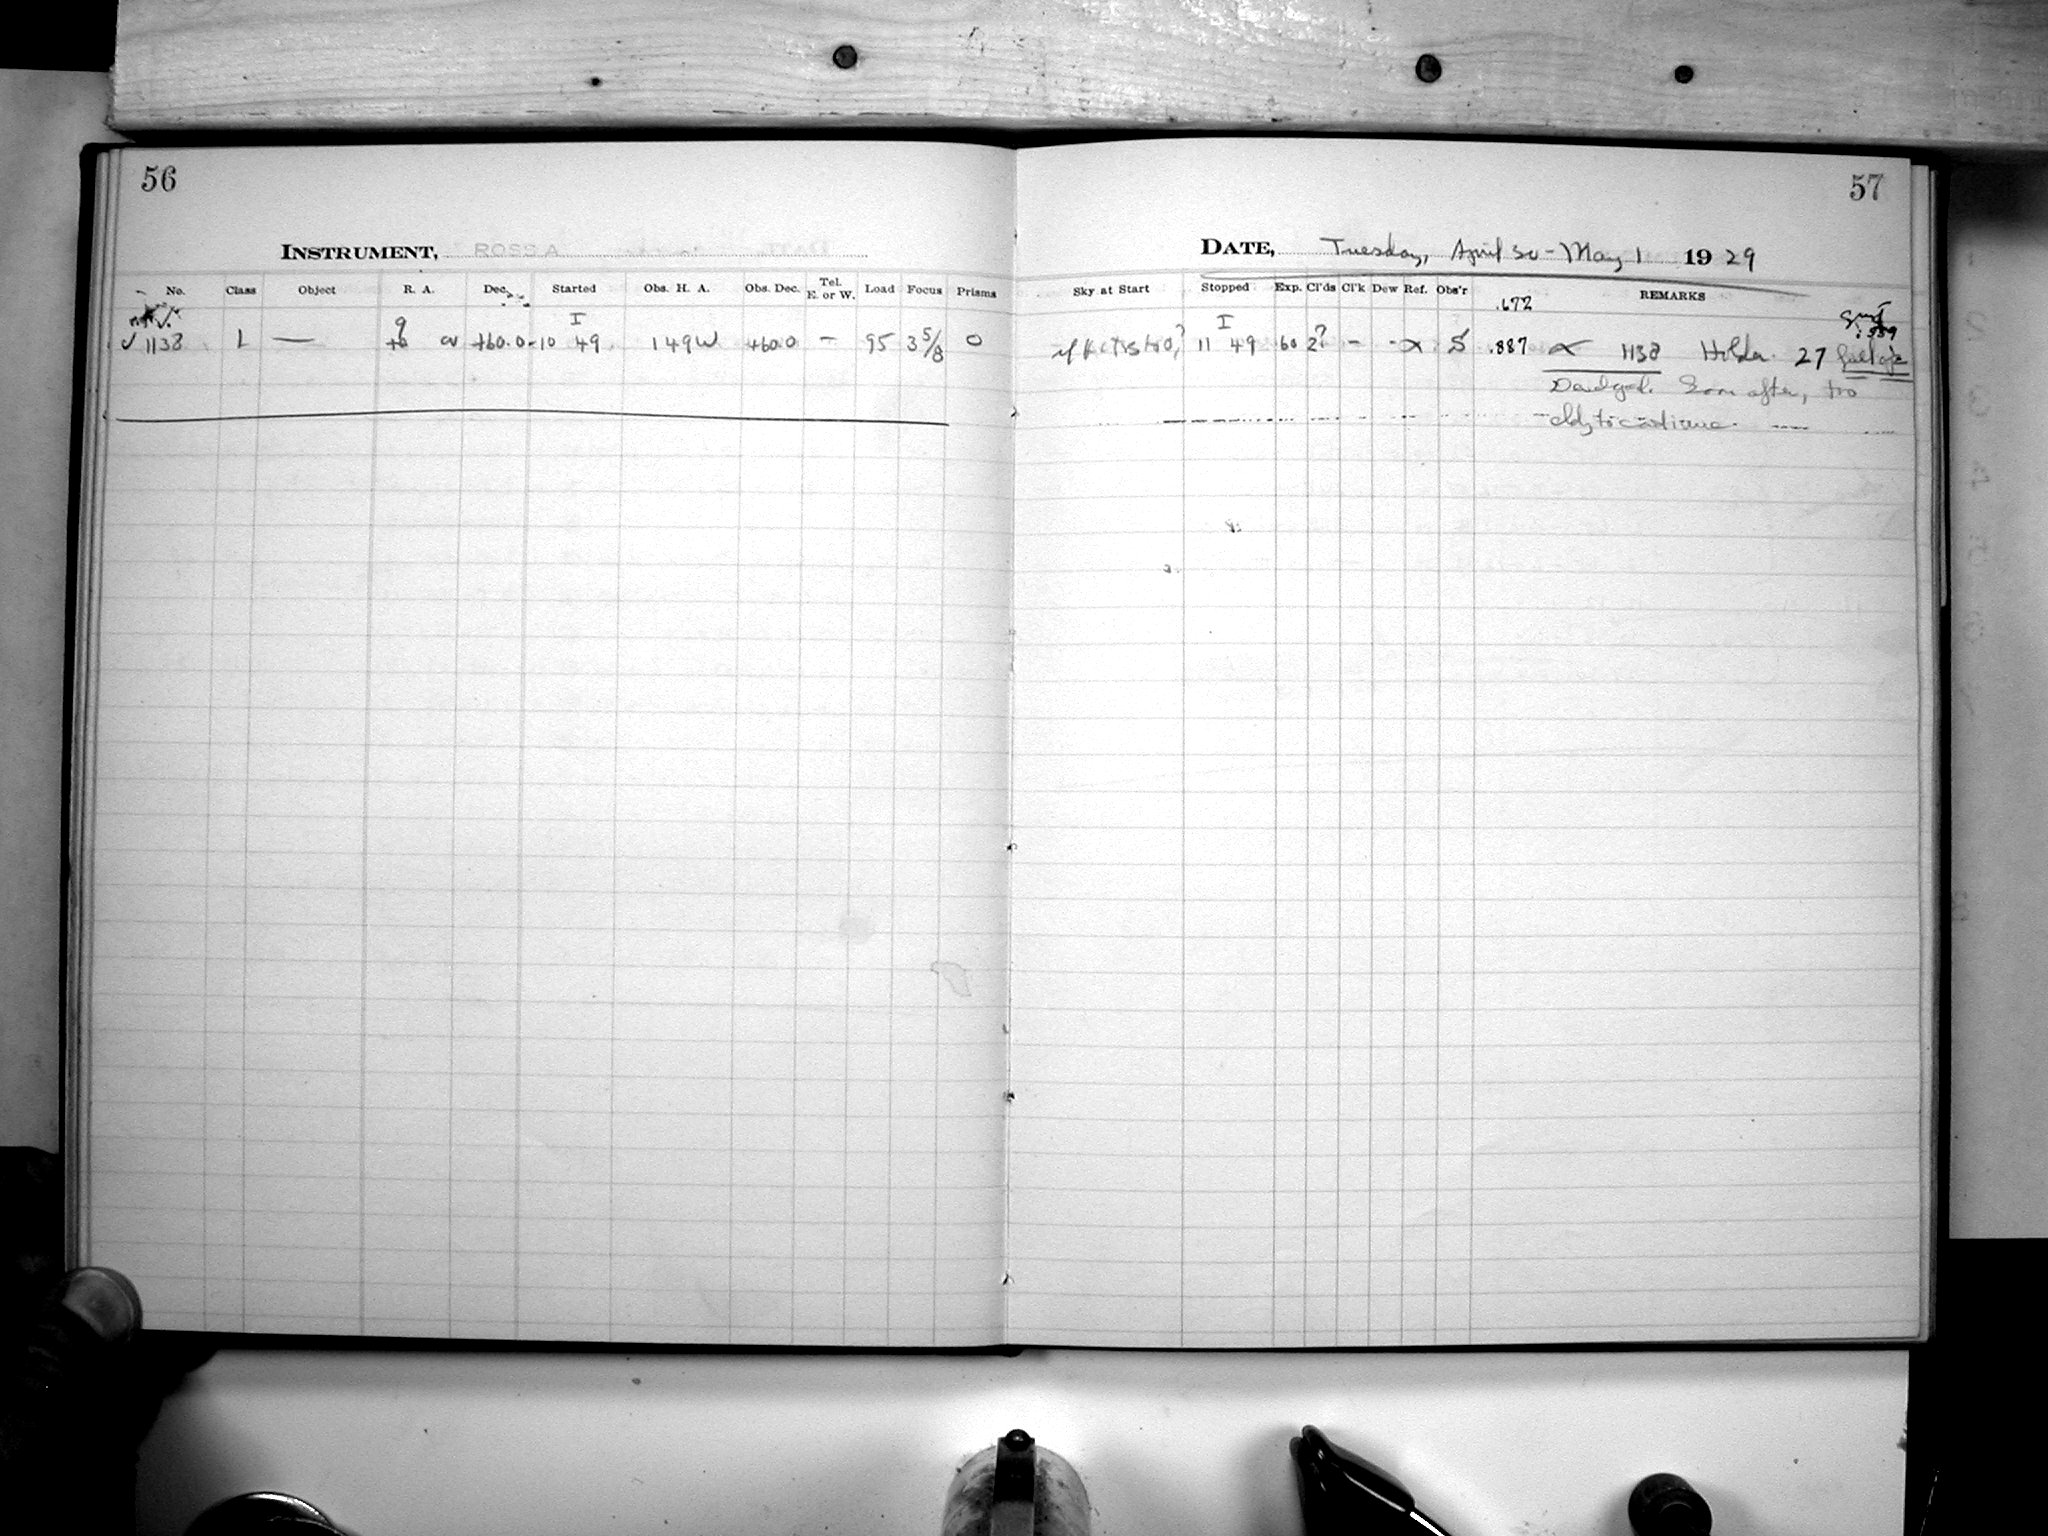 56
INSTRUMENT, ROSS A
No. Class Object R. A. Dec. Started Obs. H. A. Obs. Dec. Tel. E. or W. Load Focus Prisms
I
9
1138 L — 0v +60.0 10 49 1 49 W +60.0 — 95 3 5/8 0
57
DATE, Tuesday, April 30 - May 1 1929
Sky at Start Stopped Exp. Cl'ds Cl'k Dew Ref. Obs'r REMARKS
.672
I
11 49 60 2? - - .887 1138 Holder 27
Soon after, too
cldy to continue.